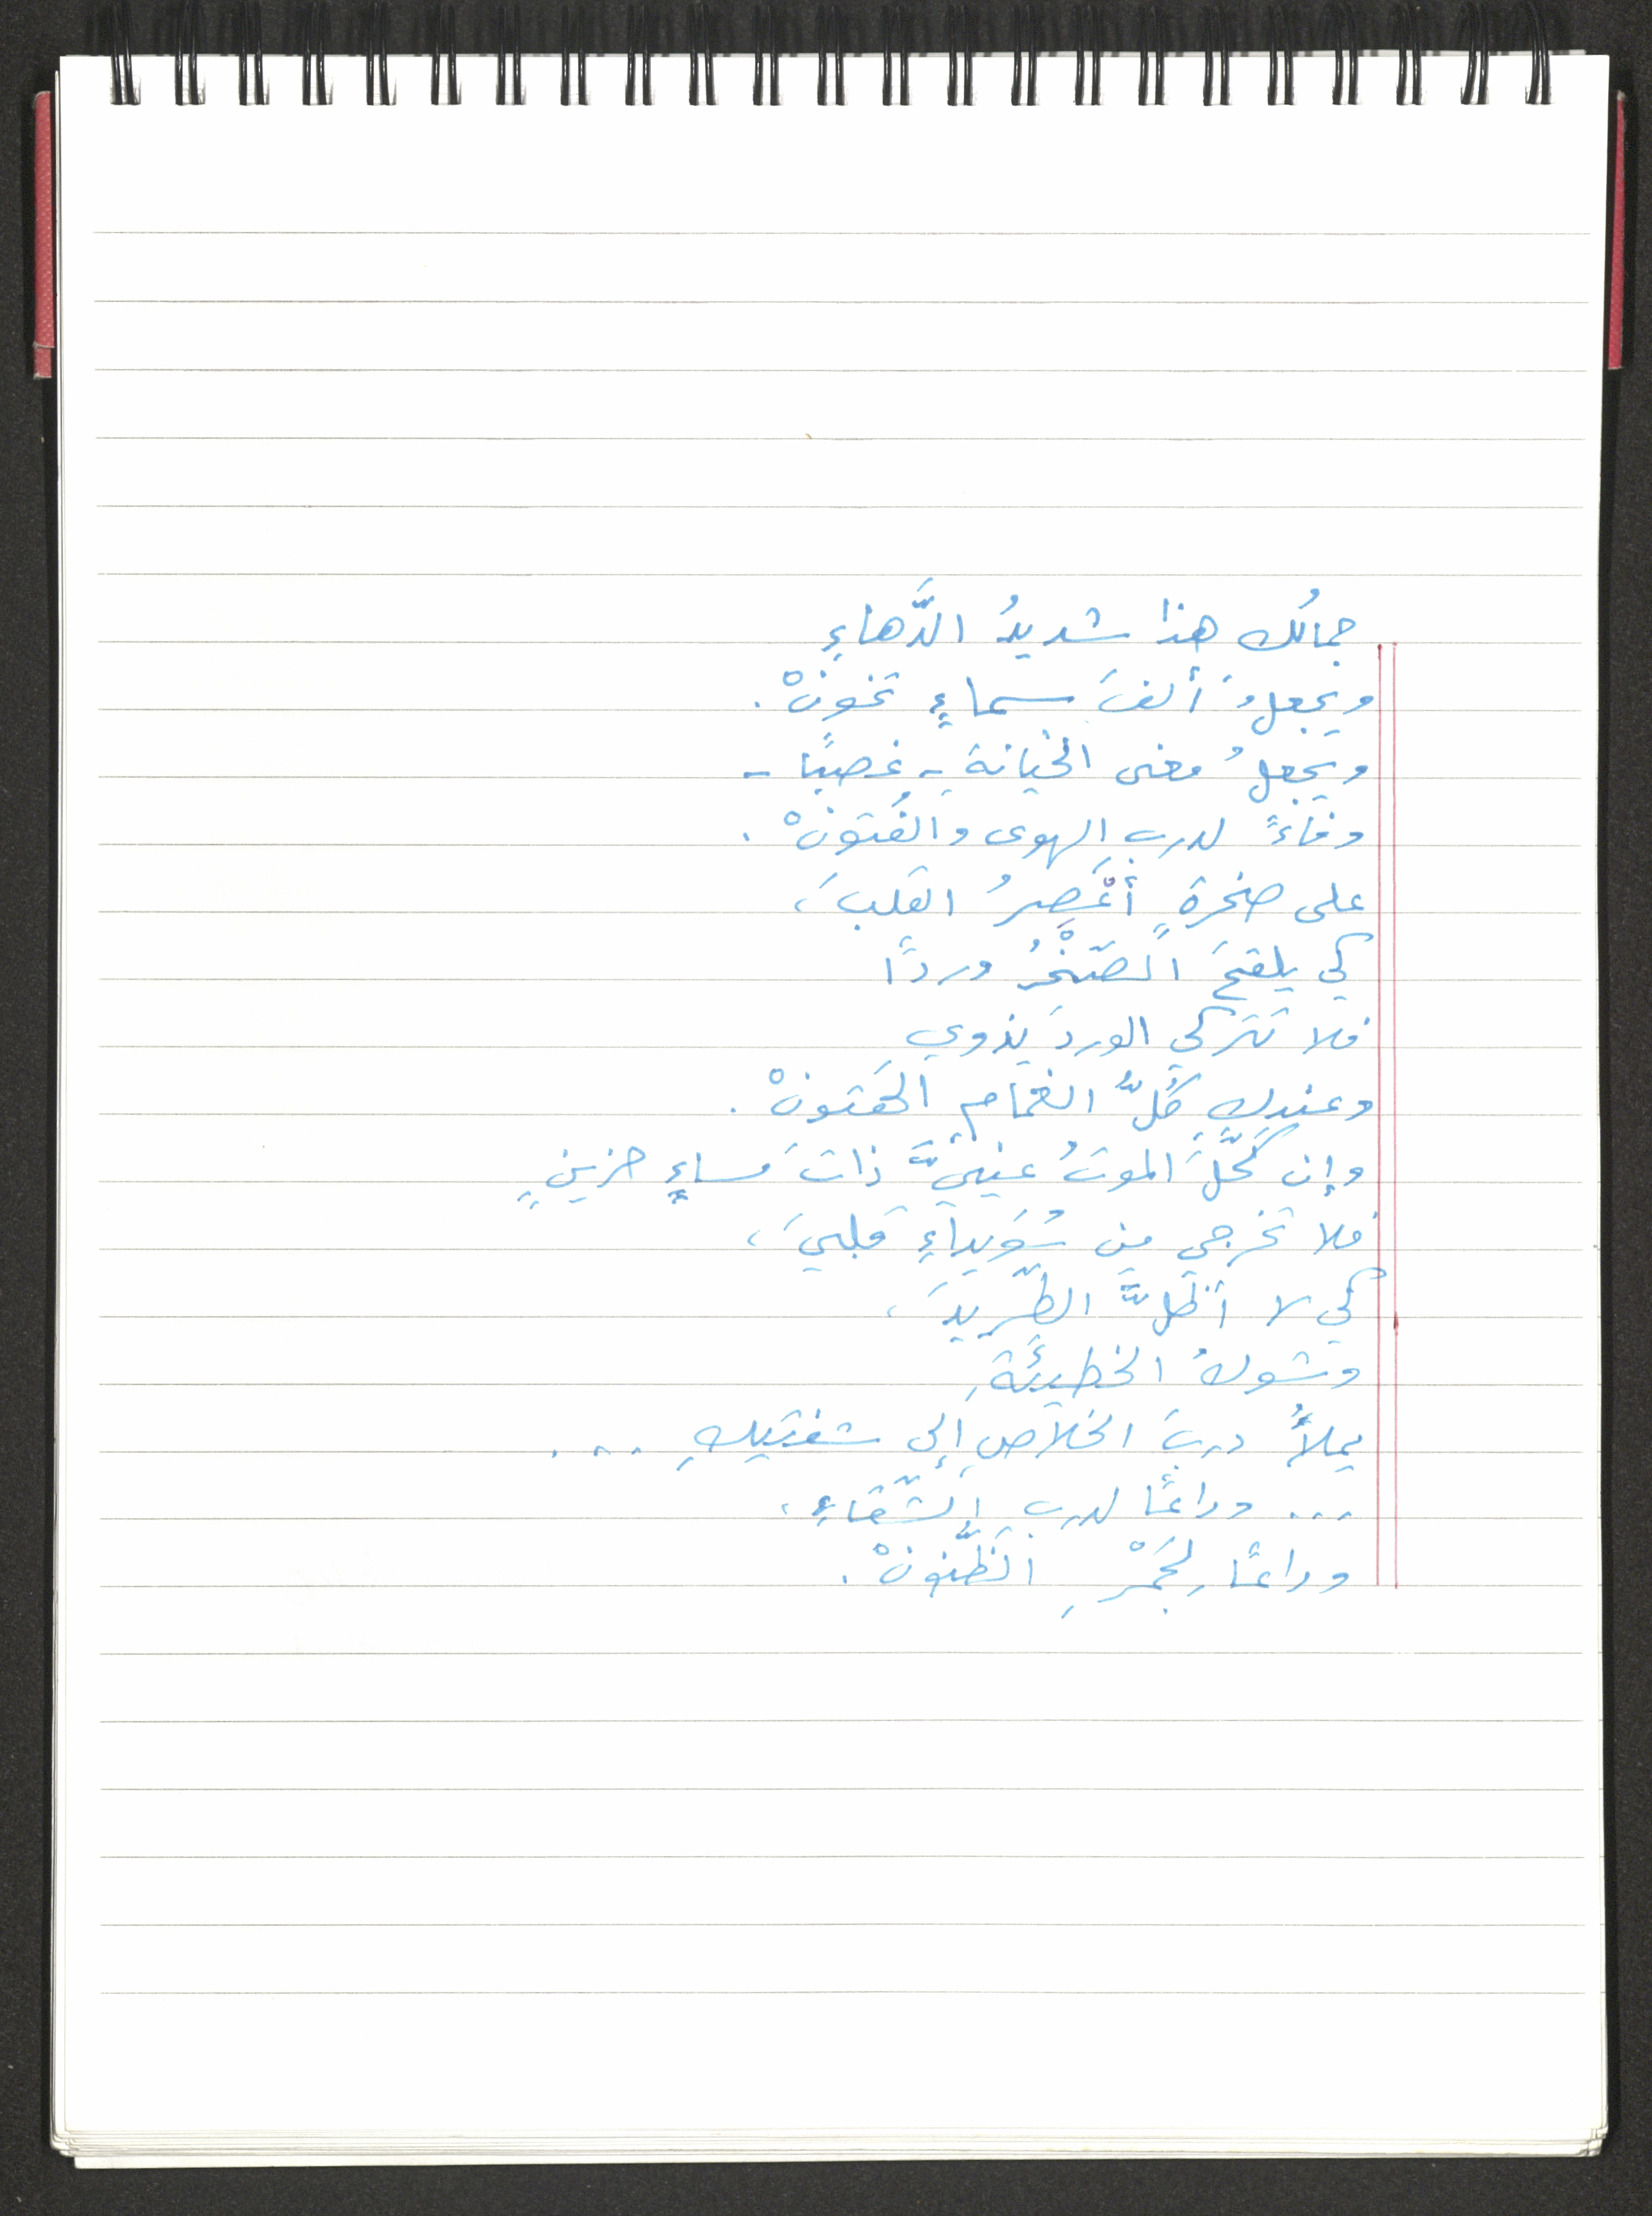 جمالُك هذا شديدُ الدَّهاءِ
ويجعلُ ألفَ سماءٍ تخونْ.
ويجعلُ معنى الخيانةِ - غصبًا -
وفاءً لدربِ الهوى والفُتونْ.
على صخرةٍ أعْصِرُ القلبَ،
كي يلقحَ الصّخْرُ وردًا
فلا تَتركي الوردَ يذوي
وعندكِ كُلُّ الغمامِ الهَتونْ.
وإن كَحَّلَ الموتُ عينيَّ ذاتَ مساءٍ حزينٍ
فلا تخرجي من سُوَيداءِ قلبيَ،
كي لا أظَلَّ الطّريدَ،
وشوكُ الخطيئَةِ
يملأُ دربَ الخلاصِ إلى شفتيكِ ....
... وداعًا لدربِ الشّقاءِ،
وداعًا لِجَمْرِ الظّنونْ.